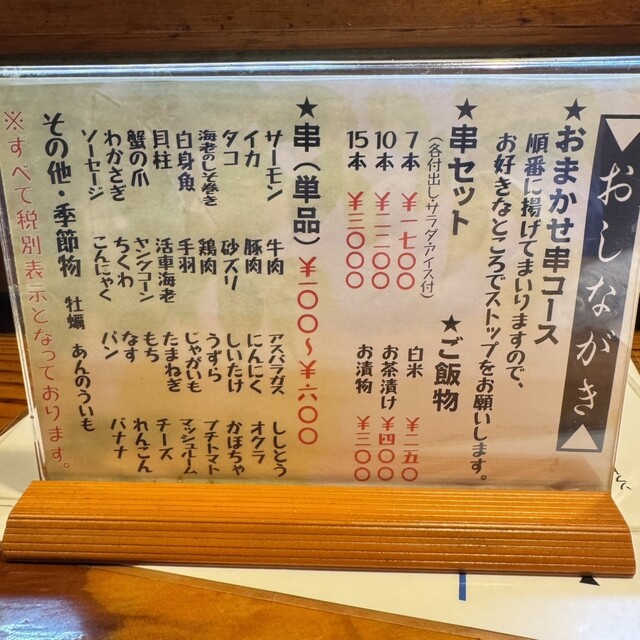 おしながき
★おまかせ串コース
順番に揚げてまいりますので、
お好きなところでストップをお願いします。
★串セット
(各付出し・サラダ・アイス付)
7本 ¥一七〇〇
10本 ¥二二〇〇
15本 ¥三〇〇〇
★ご飯物
白米 ¥二五〇
お茶漬け ¥四〇〇
お漬物 ¥三〇〇
★串(単品)¥一〇〇～¥六〇〇
サーモン 牛肉 アスパラガス ししとう
イカ 豚肉 にんにく オクラ
タコ 砂ズリ しいたけ かぼちゃ
海老のしそ巻き 鶏肉 うずら プチトマト
白身魚 手羽 じゃがいも マッシュルーム
貝柱 活車海老 たまねぎ チーズ
蟹の爪 ヤングコーン もち れんこん
わかさぎ ちくわ なす バナナ
ソーセージ こんにゃく パン
その他・季節物 牡蠣 あんのういも
※すべて税別表示となっております。